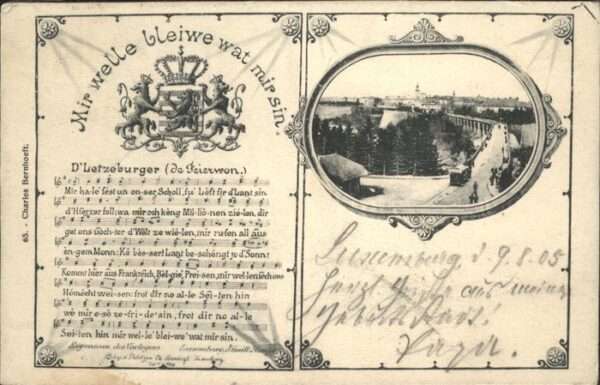 65. - Charles Bernhoeft.
Mir welle bleiwe wat mir sin.
D'Letzeburger (de Feierwon.)
Mir ha-le' fest un on-ser Scholl, fu' Le'ft fir d'Lant sin
d'Hierzer foll; wa mir och keng Mil-lio'nen zie-len, dir
get ons uech-ter d'Welt ze wie-len, mir rufen all aus
en-gem Monn: Kä bes-sert Lant be-schengt jo d'Sonn!
Kommt hier aus Frankreich, Bel-gie', Prei-sen, mir wel-len iech ons
Hémecht wei-sen: frot dir no al-le Sei-ten hin
we' mir e-so' ze-fri-de' sin, frot dir no al-le
Sei-ten hin mir wel-le' blei-we' wat mir sin.
Luxemburg, d. 9.8.05
Herzl. Grüße aus meiner